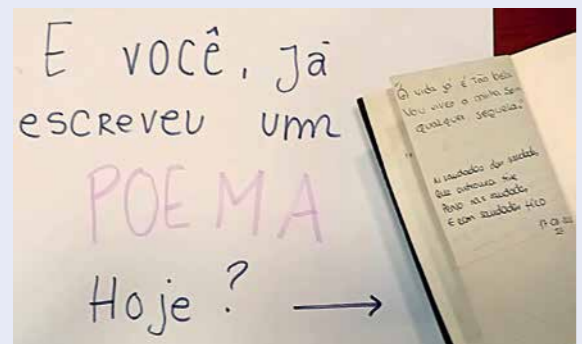 E VOCÊ, Já
escreveu um
POEMA
Hoje? →
Ó vida já é Tão bela
Vou viver a minha sem
qualquer sequela."
As saudades das saudades
Que outrora tive
Penso nas saudades
E com saudades fico